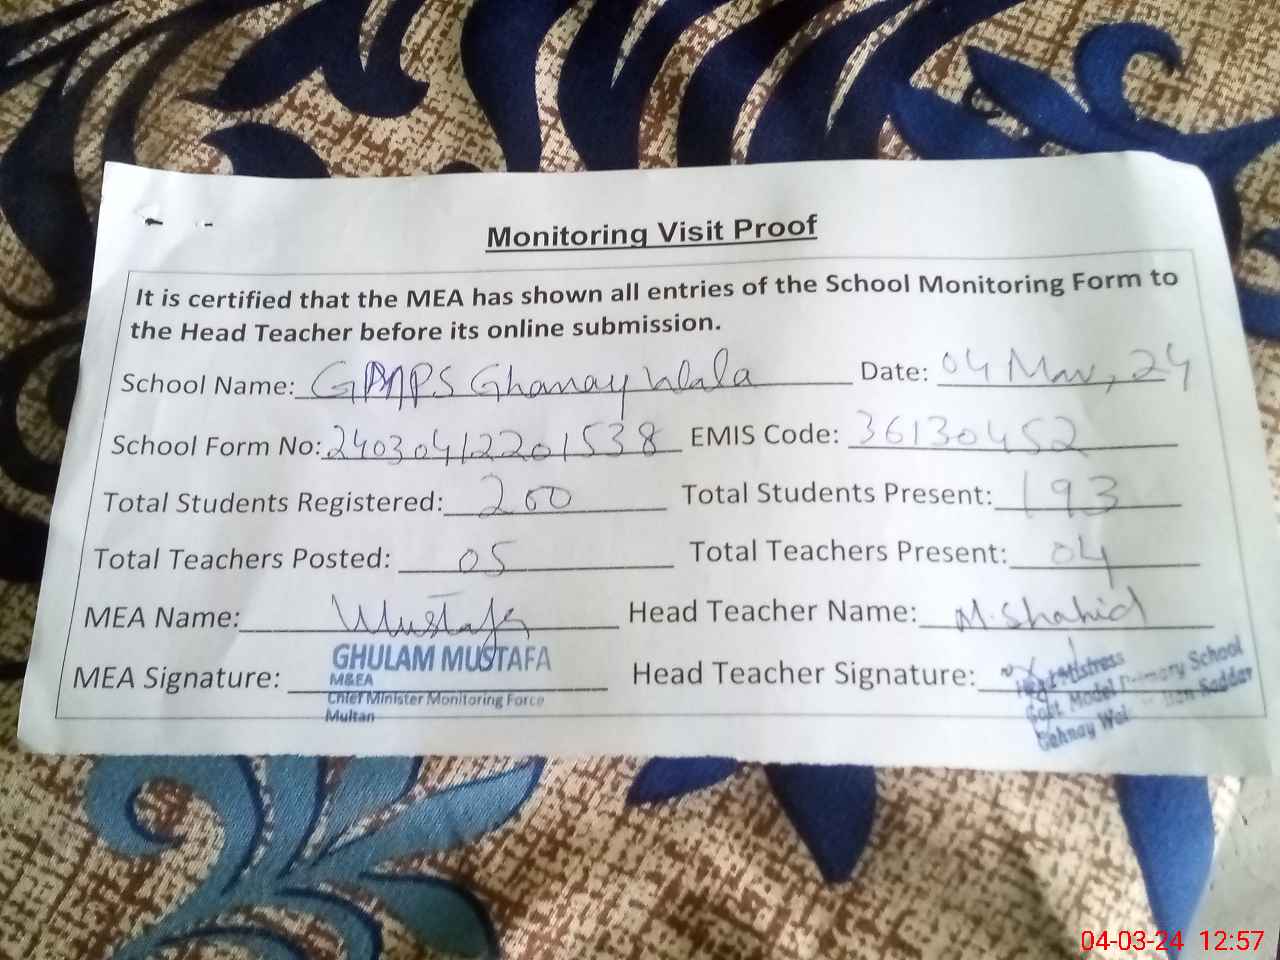 Monitoring Visit Proof
It is certified that the MEA has shown all entries of the School Monitoring Form to
the Head Teacher before its online submission.
School Name: GMPS Ghanay Wala Date: 04 Mar, 24
School Form No: 24030412201538 EMIS Code: 36130452
Total Students Registered: 200 Total Students Present: 193
Total Teachers Posted: 05 Total Teachers Present: 04
MEA Name: Mustafa Head Teacher Name: M. Shahid
MEA Signature: Head Teacher Signature:
GHULAM MUSTAFA
M&EA
Chief Minister Monitoring Force
Multan
Head Mistress
Govt Model Primary School
Gehnay Wal Saddar
04-03-24 12:57